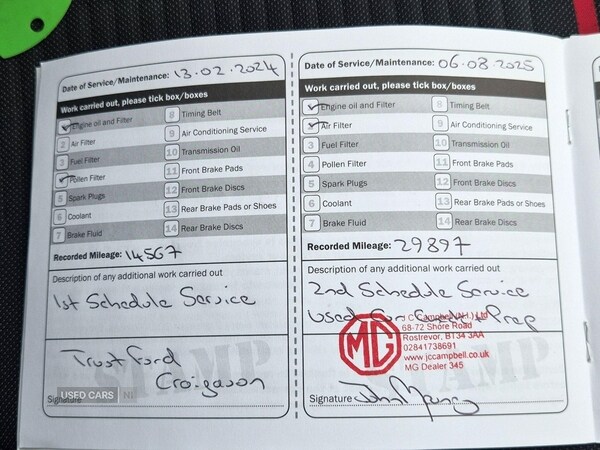 Date of Service/Maintenance: 13.02.2024
Work carried out, please tick box/boxes
1 Engine oil and Filter
8 Timing Belt
2 Air Filter
9 Air Conditioning Service
3 Fuel Filter
10 Transmission Oil
4 Pollen Filter
11 Front Brake Pads
5 Spark Plugs
12 Front Brake Discs
6 Coolant
13 Rear Brake Pads or Shoes
7 Brake Fluid
14 Rear Brake Discs
Recorded Mileage: 14567
Description of any additional work carried out
1st Schedule Service
Trust Ford
Craigavon
STAMP
Signature
USED CARS NI
Date of Service/Maintenance: 06.08.2025
Work carried out, please tick box/boxes
1 Engine oil and Filter
8 Timing Belt
2 Air Filter
9 Air Conditioning Service
3 Fuel Filter
10 Transmission Oil
4 Pollen Filter
11 Front Brake Pads
5 Spark Plugs
12 Front Brake Discs
6 Coolant
13 Rear Brake Pads or Shoes
7 Brake Fluid
14 Rear Brake Discs
Recorded Mileage: 29897
Description of any additional work carried out
2nd Schedule Service
Used Car Prep
MG
J C Campbell (N.I.) Ltd
68-72 Shore Road
Rostrevor, BT34 3AA
02841738691
www.jccampbell.co.uk
MG Dealer 345
STAMP
Signature John